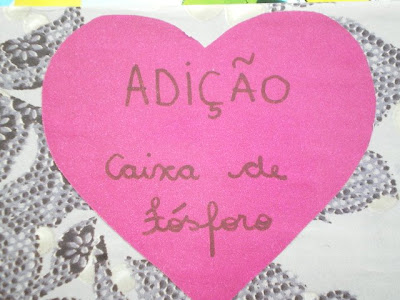 ADIÇÃO
Caixa de
fósforo